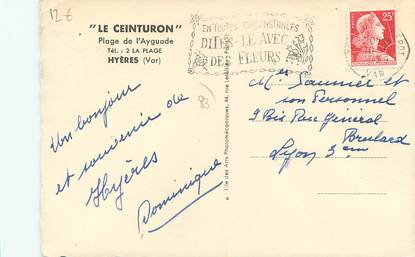 12 €
"LE CEINTURON"
Plage de l'Ayguade
Tél. : 2 LA PLAGE
HYÈRES (Var)
EN TOUTES CIRCONSTANCES
DITES-LE AVEC
DES FLEURS
25F
VAR
83
Un bonjour
et souvenir de
Hyères
Dominique
Mr Saunier et
son Personnel
9 Bis Rue General
Brulard
Lyon 3em